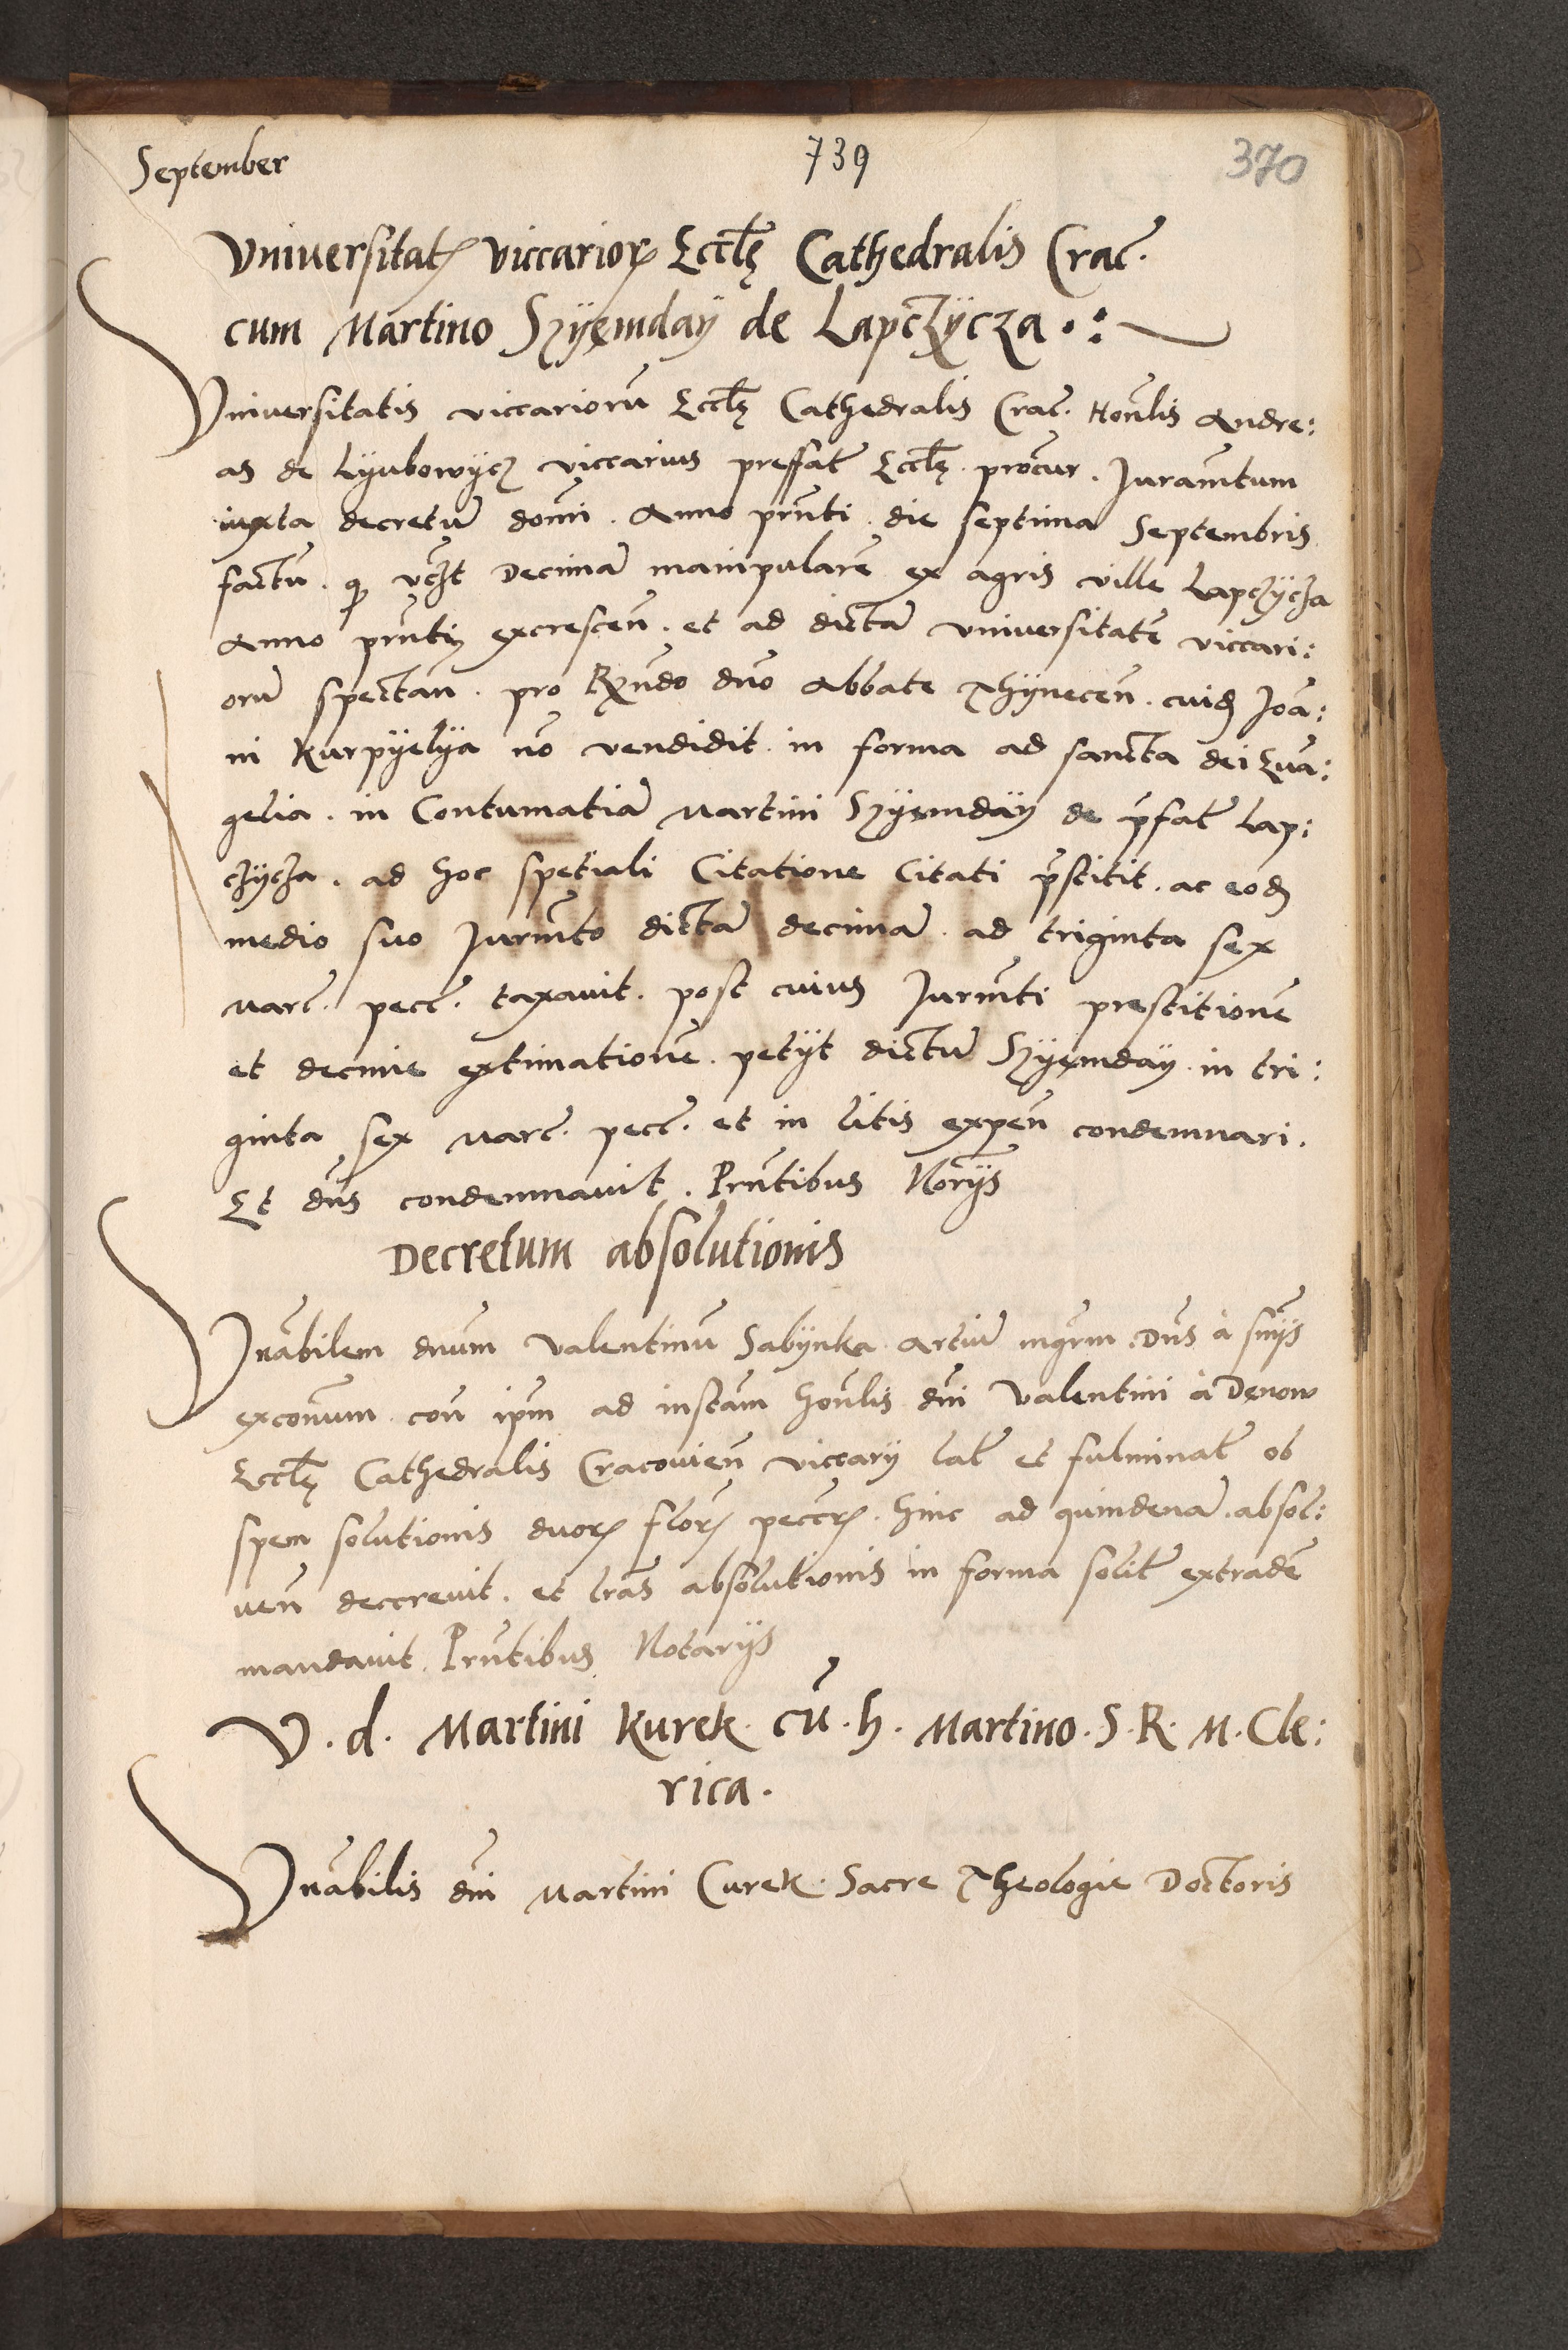 September 739 370
Vniuersitatꝭ viccarioꝝ Eccl̃ę Cathedralis Crac̃.
cum Martino Szyęmday de Lapczycza
Vniuersitatis viccariorũ Eccl̃ę Cathedralis Crac̃. Honl̃is Andre:
as de Lyubowycz viccarius preffat̃ Eccl̃ę. procur̃. Juramtum
iuxta decretũ domi. Anno pñti die septima Septembris
factũ. ꝙ vczt Decimã manipularẽ ex agris ville Lapczycza
Anno pñti excrescen̄. et ad dictã vniuersitatẽ viccari:
orũ spectan̄. pro Rn̄do dño Abbate Thynecen̄. cuidam Joã:
ni Kurpyelya nõ vendidit. in forma ad sancta dei Euã:
gelia. in Contumatiã Martini Szyęmday de p̃fat̃ Lap:
czycza. ad hoc spetiali Citatione Citati p̃stitit. ac eodem
medio suo Jurm̃to dictã decimã. ad triginta sex
marc̃. pecc̃. taxauit. post cuius Jurm̃ti prestitionẽ
et decime extimationẽ. petyt dictũ Szyęmday. in tri:
ginta sex marc̃. pecc̃. et in litis expen̄ condemnari.
Et dñs condemnauit. Pñtibus Norijs
Decretum absolutionis
Vñabilem dñum Valentinũ Sabynka artiũ mgr̃m Dñs à sñijs
excoñum con̄ ipm̃ ad instam̃ honl̃is dñi Valentini à Denow
Eccl̃ę Cathedralis Cracouien̄ viccarij lat̃ et fulminat̃ ob
spem solutionis duoꝝ floꝝ peccꝝ. hinc ad quindenã. absol:
uen̄ decreuit. et lr̃as absolutionis in forma solit̃ extradẽ
mandauit. Pñtibus Notarijs
V. d. Martini Kurek. cũ. h. Martino. S. R. M. Cle:
rica.
Vñabilis dñi Martini Curek. Sacre Theologie Doctoris